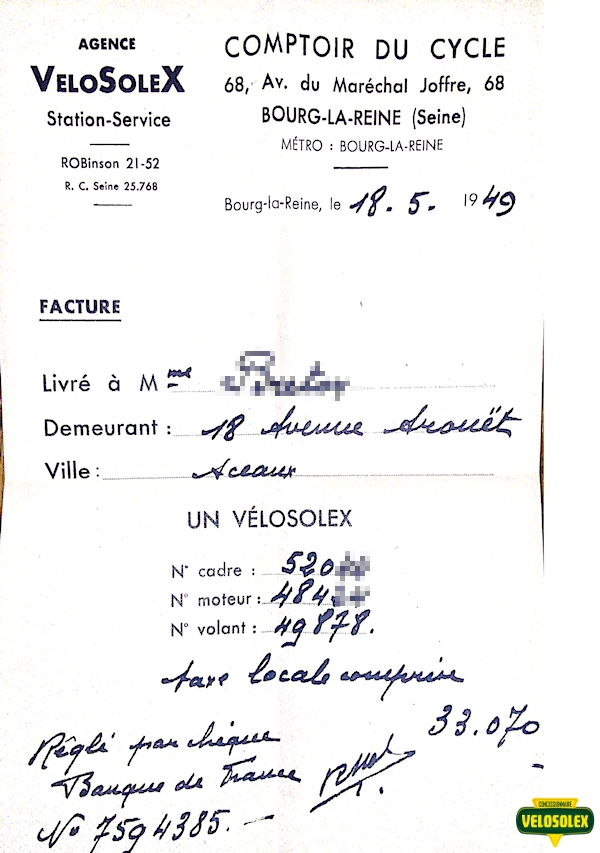 AGENCE
VELOSOLEX
Station-Service
ROBinson 21-52
R. C. Seine 25.768
COMPTOIR DU CYCLE
68, Av. du Maréchal Joffre, 68
BOURG-LA-REINE (Seine)
MÉTRO : BOURG-LA-REINE
Bourg-la-Reine, le 18. 5. 1949
FACTURE
Livré à Mme
Demeurant : 18 Avenue Arouët
Ville : Sceaux
UN VÉLOSOLEX
N° cadre : 520
N° moteur : 484
N° volant : 49878.
taxe locale comprise
33.070
Réglé par chèque
Banque de France
No 7594385. -
CONCESSIONNAIRE
VELOSOLEX